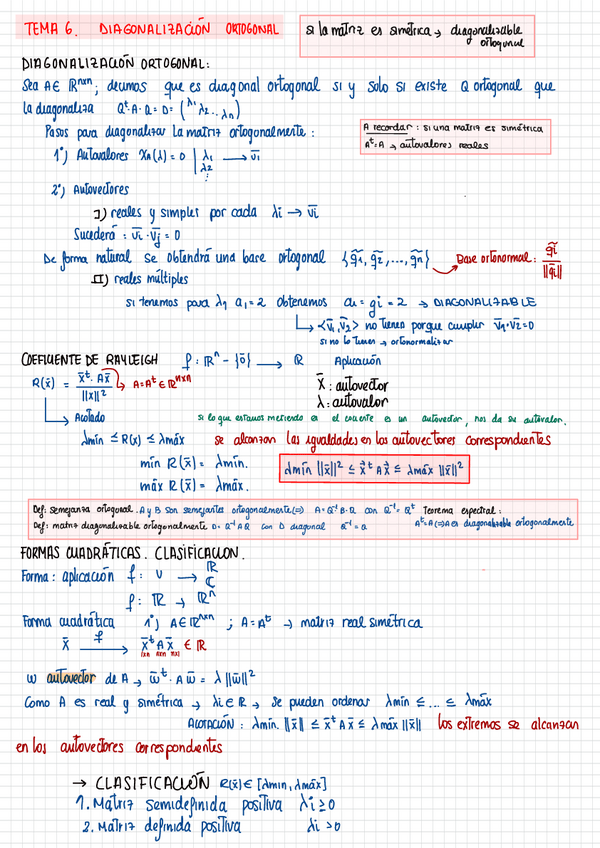 TEMA 6. DIAGONALIZACIÓN ORTOGONAL
si la matriz es simétrica → diagonalizable ortogonal
DIAGONALIZACIÓN ORTOGONAL:
Sea A ∈ ℝⁿˣⁿ; decimos que es diagonal ortogonal si y solo si existe Q ortogonal que
la diagonaliza Qᵗ·A·Q = D = (λ₁ λ₂ ... λₙ)
Pasos para diagonalizar la matriz ortogonalmente:
A recordar: si una matriz es simétrica
Aᵗ=A → autovalores reales
1º) Autovalores Xₙ(λ) = 0 | λ₁ → v̄₁
λ₂
⋮
2º) Autovectores
I) reales y simples por cada λi → v̄i
Sucederá: v̄i · v̄j = 0
De forma natural se obtendrá una base ortogonal {q̃₁, q̃₂, ..., q̃ₙ} → Base ortonormal: q̃i / ||q̃i||
II) reales múltiples
si tenemos para λ₁ a₁=2 obtenemos ai = gi = 2 → DIAGONALIZABLE
→ <v̄₁, v̄₂> no tienen porque cumplir v̄₁·v̄₂=0
si no lo tienen → ortonormalizar
COEFICIENTE DE RAYLEIGH f: ℝⁿ - {ō} → ℝ Aplicación
R(x̄) = x̄ᵗ·Ax̄ / ||x||² → A=Aᵗ ∈ ℝⁿˣⁿ
x̄: autovector
λ: autovalor
→ Acotado
si lo que estamos metiendo en el cociente es un autovector, nos da su autovalor.
λmín ≤ R(x) ≤ λmáx se alcanzan las igualdades en los autovectores correspondientes
mín R(x̄) = λmín.
máx R(x̄) = λmáx.
λmín ||x̄||² ≤ x̄ᵗ A x̄ ≤ λmáx ||x̄||²
Def: semejanza ortogonal. A y B son semejantes ortogonalmente ⟺ A = Q⁻¹·B·Q con Q⁻¹ = Qᵗ Teorema espectral:
Def: matriz diagonalizable ortogonalmente D = Q⁻¹AQ con D diagonal Q⁻¹ = Q Aᵗ=A ⟺ A es diagonalizable ortogonalmente
FORMAS CUADRÁTICAS. CLASIFICACION.
Forma: aplicación f: V → ℝ
ℂ
f: ℝ → ℝⁿ
Forma cuadrática 1º) A ∈ ℝⁿˣⁿ ; A = Aᵗ → matriz real simétrica
x̄ —f→ x̄ᵗ A x̄ ∈ ℝ
1xn nxn nx1
w autovector de A → w̄ᵗ·A w̄ = λ ||w̄||²
Como A es real y simétrica → λi ∈ ℝ → se pueden ordenar λmín ≤ ... ≤ λmáx
ACOTACIÓN: λmín. ||x̄|| ≤ x̄ᵗ A x̄ ≤ λmáx ||x̄|| los extremos se alcanzan
en los autovectores correspondientes
→ CLASIFICACIÓN R(x̄) ∈ [λmin, λmáx]
1. Matriz semidefinida positiva λi ≥ 0
2. Matriz definida positiva λi > 0